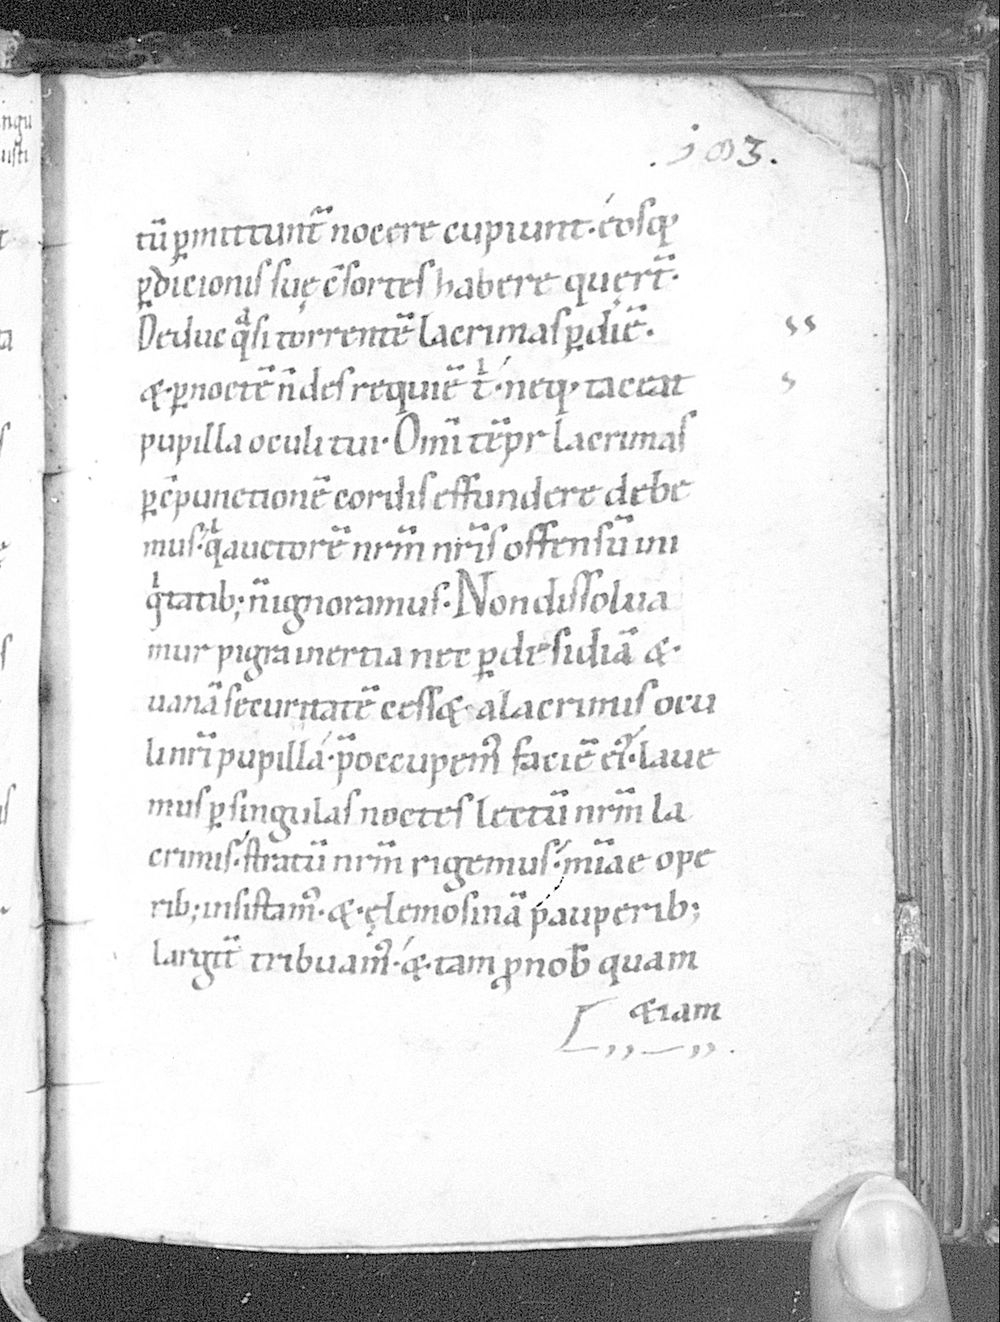 .103.
tū ꝑmittunt̄ nocere cupiunt· eosq;
ꝑdicionis suę c̄sortes habere quęrt̄·
Deduc q̄si torrentē lacrimas ꝑ diē·
⁊· ꝑ noctē n̄ des requiē t̄· neq; taceat
pupilla oculi tui· Om̄i tēpr lacrimas
ꝑ c̄punctionē cordis effundere debe
mus· q̄ auctorē nrm̄ nr̄is offensū ini
q̄tatib; n̄ ignoramus· Non dissolua
mur pigra inertia nec ꝑ desidiā &·
uanā securitatē cess& a lacrimis ocu
li nr̄i pupilla· p̄occupem᷒ faciē ei᷒· laue
mus ꝑ singulas noctes lectū nrm̄ la
crimis· stratū nrm̄ rigemus· mīae ope
rib; insistam᷒· &· ęlemosinā pauperib;
largit̄ tribuam᷒· &· tam ꝓ nob̄ quam
&iam